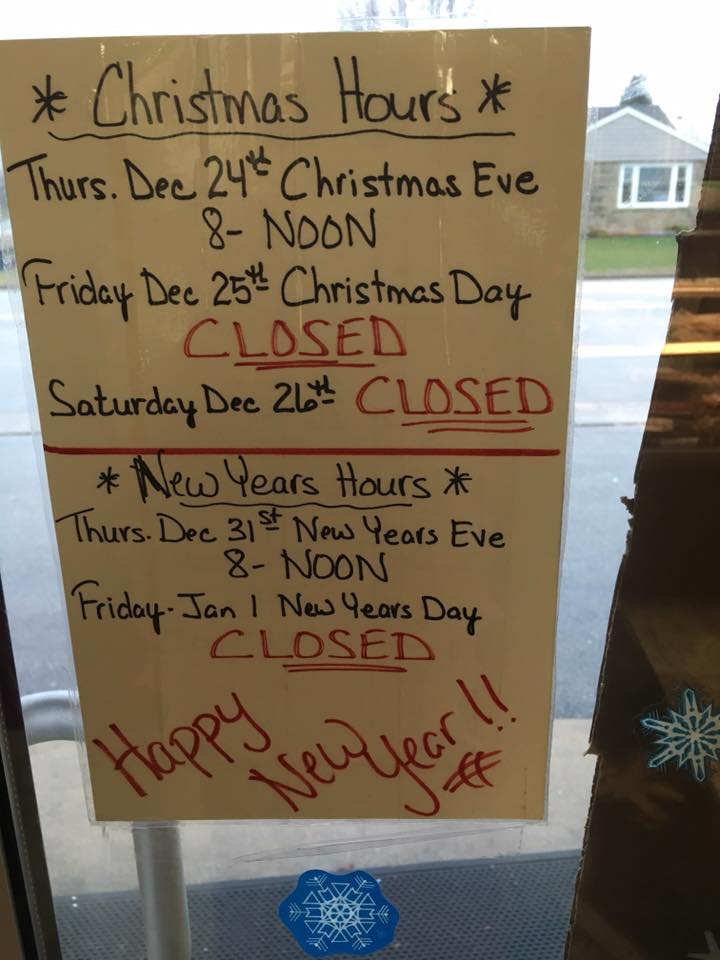 * Christmas Hours *
Thurs. Dec 24th Christmas Eve
8- NOON
Friday Dec 25th Christmas Day
CLOSED
Saturday Dec 26th CLOSED
* New Years Hours *
Thurs. Dec 31st New Years Eve
8- NOON
Friday- Jan 1 New Years Day
CLOSED
Happy
New Year!!